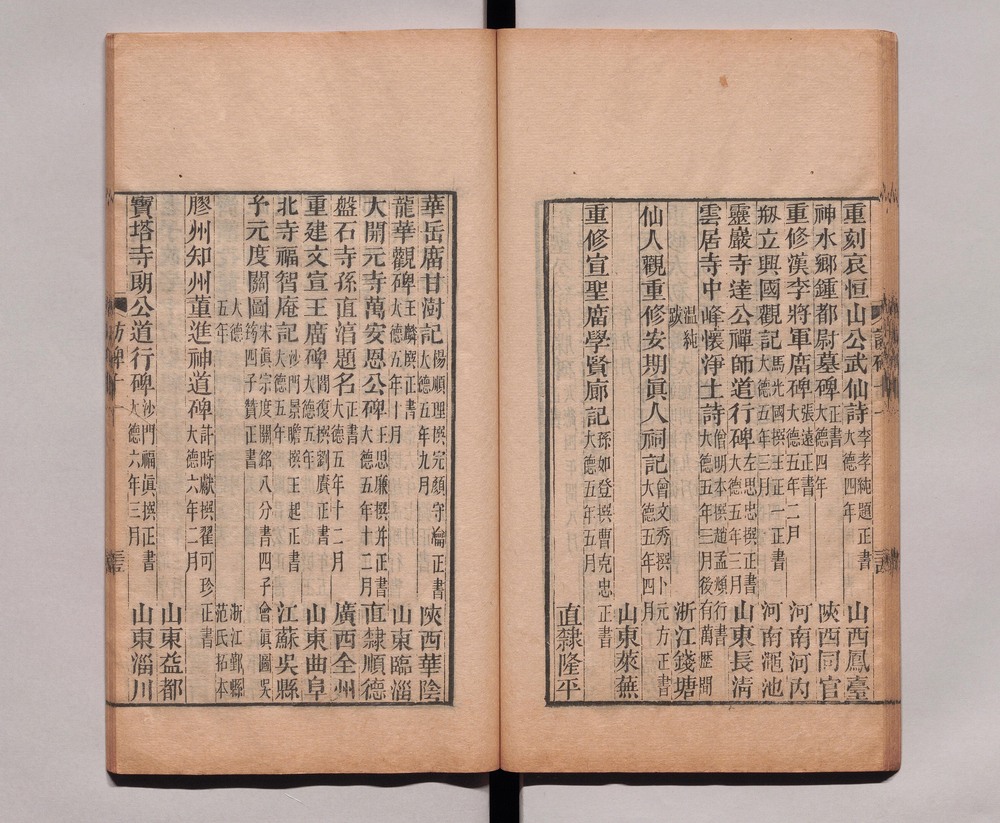 重刻哀恒山公武仙詩 李孝純題正書 大德四年 山西鳳臺
神水鄉鍾都尉墓碑 正書 大德四年 陝西同官
重修漢李將軍廟碑 張遠正書 大德五年二月 河南河內
剏立興國觀記 馬光國撰王正一正書 大德五年三月 河南澠池
靈巖寺達公禪師道行碑 左思忠撰正書 大德五年三月 山東長清
雲居寺中峰懷淨土詩 僧明本撰趙孟頫行書 大德五年三月後有萬歷間
溫純跋 浙江錢塘
仙人觀重修安期眞人祠記 曾文秀撰卜元方正書 大德五年四月
山東萊蕪
重修宣聖廟學賢廊記 孫如登撰曹克忠正書 大德五年五月
直隸隆平
華岳廟甘澍記 楊順理撰完顏守淪正書 大德五年九月 陝西華陰
龍華觀碑 王麟撰正書 大德五年十月 山東臨淄
大開元寺萬安恩公碑 王思廉撰并正書 大德五年十二月 直隸順德
盤石寺孫直㴞題名 正書 大德五年十二月 廣西全州
重建文宣王廟碑 閻復撰劉賡正書 大德五年 山東曲阜
北寺福智庵記 沙門景瞻撰王起正書 大德五年 江蘇吳縣
予元度關圖 宋眞宗度關銘八分書四子會眞圖吳筠四子贊正書
大德五年 浙江鄞縣范氏拓本
膠州知州董進神道碑 許時獻撰翟可珍正書 大德六年二月
山東益都
寶塔寺朗公道行碑 沙門福眞撰正書 大德六年三月 山東淄川